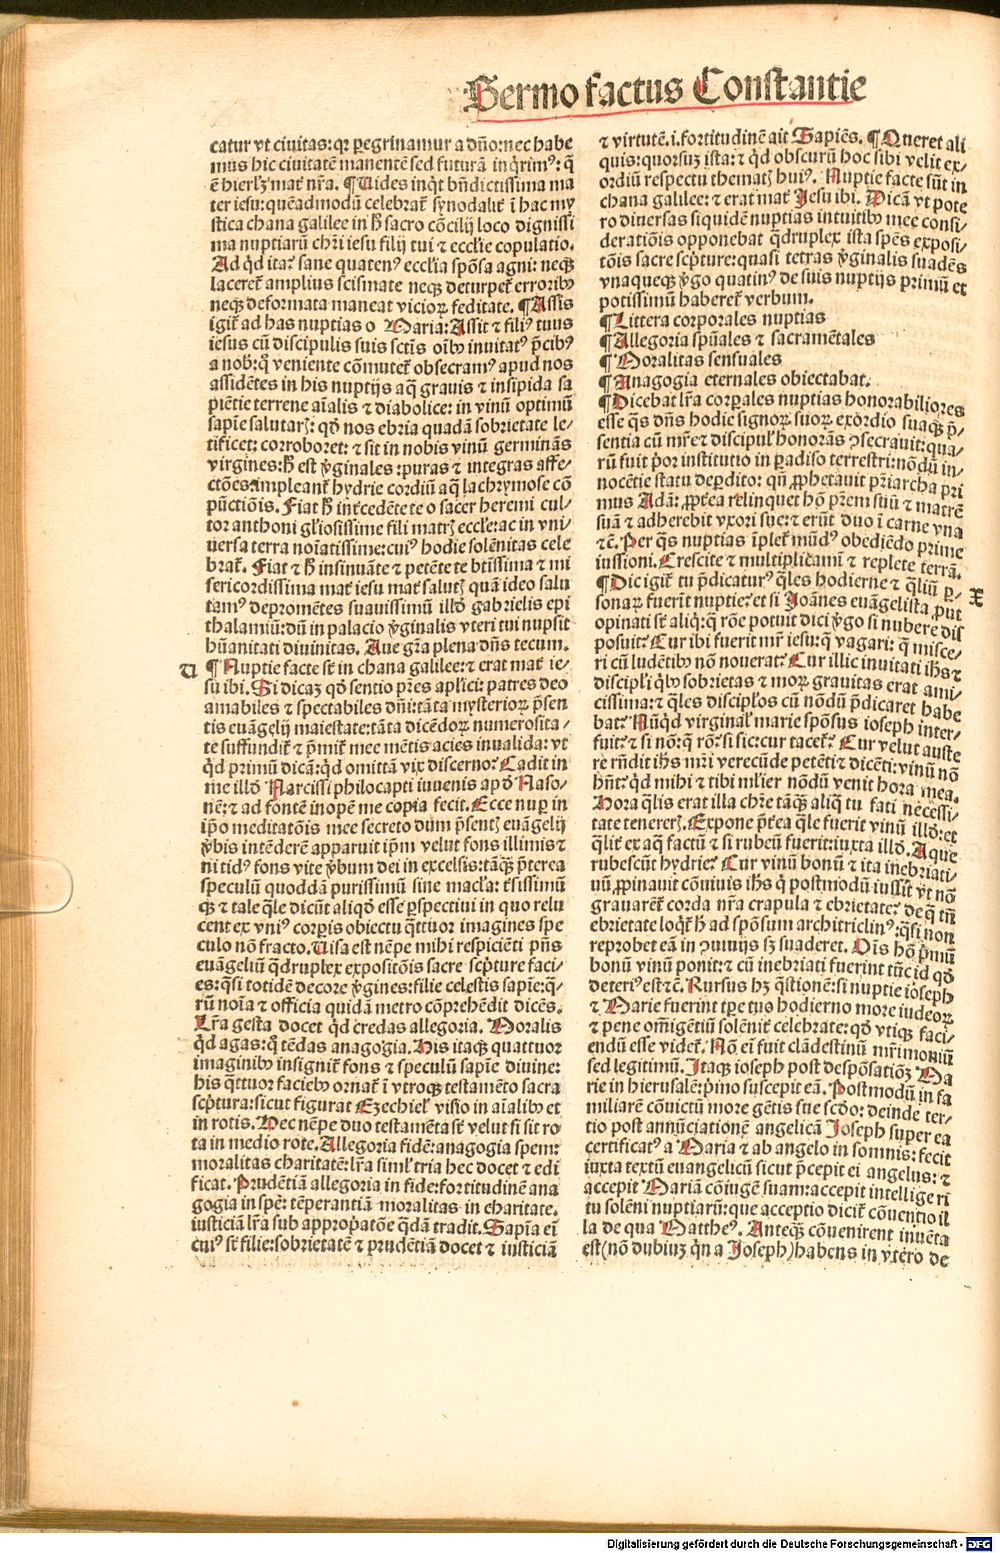 Sermo factus Constantie
catur vt ciuitas: qꝛ peregrinamur a dño: nec habe
mus hic ciuitatē manentē sed futurā inqͥrimꝰ: q̄
ē hierlꝫ mat̉ nr̄a. ¶ Uides inqͥt bn̄dictissima ma
ter iesu: quēadmodū celebrat̉ synodalit̉ ī hac my
stica chana galilee in h̄ sacro cōcilij loco dignissi
ma nuptiarū chr̄i iesu filij tui ⁊ eccl̄ie copulatio.
Ad qͥd ita? sane quatenꝰ eccl̄ia spōsa agni: neqꝫ
laceret̉ amplius scismate neqꝫ deturpet̉ erroribꝰ
neqꝫ deformata maneat vicioꝝ feditate. ¶ Assis
igit̉ ad has nuptias o Maria: Assit ⁊ filiꝰ tuus
iesus cū discipulis suis sctīs oībꝰ inuitatꝰ p̄cibꝰ
a nob̉: q̄ veniente cōmutet̉ obsecramꝰ apud nos
assidētes in his nuptijs aq̄ grauis ⁊ insipida sa
piētie terrene aīalis ⁊ diabolice: in vinū optimū
sapīe salutarꝭ: qd̄ nos ebria quadā sobrietate le⸗
tificet: corroboret: ⁊ sit in nobis vinū germināns
virgines: h̄ est v̓ginales: puras ⁊ integras affe⸗
ctōes: impleant̉ hydrie cordiū aq̄ lachrymose cō
pūctiōis. Fiat h̄ int̉cedēte te o sacer heremi cul⸗
tor anthoni gl̄iosissime fili matrꝭ eccl̄ie: ac in vni⸗
uersa terra noīatissime: cuiꝰ hodie solēnitas cele
brat̉. Fiat ⁊ h̄ insinuāte ⁊ petēte te btīssima ⁊ mi
sericordissima mat̉ iesu mat̉ salutꝭ quā ideo salu
tamꝰ depromētes suauissimū illd̄ gabrielis epi
thalamiū: dū in palacio v̓ginalis vteri tui nupsit
hūanitati diuinitas. Aue gr̄a plena dn̄s tecum.
U ¶ Nuptie facte st̄ in chana galilee: ⁊ erat mat̉ ie⸗
su ibi. Si dicaꝫ qd̄ sentio pr̄es apl̄ici: patres deo
amabiles ⁊ spectabiles dn̄i: tāta mysterioꝝ p̄sen
tis euāgelij maiestate: tāta dicēdoꝝ numerosita⸗
te suffundit̉ ⁊ p̄mit̉ mee mētis acies inualida: vt
qͥd primū dicā: qͥd omittā vix discerno? Cadit in
me illd̄ Narcissi philocapti iuuenis apd̄ Naso⸗
nē: ⁊ ad fontē inopē me copia fecit. Ecce nuꝑ in
ip̄o meditatōis mee secreto dum p̄sentꝭ euāgelij
v̓bis intēderē apparuit ip̄m velut fons illimis ⁊
nitidꝰ fons vite v̓bum dei in excelsis: tāqꝫ p̄terea
speculū quoddā purissimū sine macl̄a: t̉sissimū
qꝫ ⁊ tale qͣle dicūt aliqd̄ esse ꝑspectiui in quo relu
cent ex vniꝰ corꝑis obiectu qͣttuor imagines spe
culo nō fracto. Uisa est nēpe mihi respiciēti pn̄s
euāgeliū qͣdruplex expositōis sacre scp̄ture faci⸗
es: qͣsi totidē decore v̓gines: filie celestis sapīe: qͣ⸗
rū noīa ⁊ officia quidā metro cōprehēdit dicēs.
Lr̄a gesta docet qͥd credas allegoria. Moralis
qͥd agas: qͦ tēdas anagogia. His itaqꝫ quattuor
imaginibꝰ insignit̉ fons ⁊ speculū sapīe diuine:
his qͣttuor faciebꝰ ornat̉ ī vtroqꝫ testamēto sacra
scp̄tura: sicut figurat Ezechiel̉ visio in aīalibꝰ et
in rotis. Hec nēpe duo testamēta st̄ velut si sit ro
ta in medio rote. Allegoria fidē: anagogia spem:
moralitas charitatē: lr̄a siml̉ tria hec docet ⁊ edi
ficat. Prudētiā allegoria in fide: fortitudinē ana
gogia in spē: tēperantiā moralitas in charitate.
iusticiā lr̄a sub appropatōe qͣdā tradit. Sapīa eī
cuiꝰ st̄ filie: sobrietatē ⁊ prudētiā docet ⁊ iusticiā
⁊ virtutē .i. fortitudinē ait Sapiēs. ¶ Queret ali
quis: quorsuꝫ ista: ⁊ qͥd obscurū hoc sibi velit ex⸗
ordiū respectu thematꝭ huiꝰ. Nuptie facte sūt in
chana galilee: ⁊ erat mat̉ Jesu ibi. Dicā vt pote
ro diuersas siquidē nuptias intuitibꝰ mee consi⸗
deratiōis opponebat qͣdruplex ista spēs exposi⸗
tōis sacre scp̄ture: quasi tetras v̓ginalis suadēs
vnaqueqꝫ v̓go quatinꝰ de suis nuptijs primū et
potissimū haberet̉ verbum.
¶ Littera corporales nuptias
¶ Allegoria spūales ⁊ sacramētales
¶ Moralitas sensuales
¶ Anagogia eternales obiectabat.
¶ Dicebat lr̄a corꝑales nuptias honorabiliores
esse qͣs dn̄s hodie signoꝝ suoꝝ exordio suaqꝫ p̄⸗
sentia cū mr̄e ⁊ discipul̉ honorās ꝯsecrauit: qua⸗
rū fuit p̓or institutio in ꝑadiso terrestri: nōdū in⸗
nocētie statu deꝑdito: qn̄ ꝓphetauit pr̄iarcha pri
mus Adā: ꝓpt̉ea relinquet hō pr̄em suū ⁊ matrē
suā ⁊ adherebit vxori sue: ⁊ erūt duo ī carne vna
⁊c̄. Per qͣs nuptias īplet̉ mūdꝰ obediēdo prime
iussioni. Crescite ⁊ multiplicamī ⁊ replete terrā.
¶ Dic igit̉ tu p̄dicaturꝰ qͣles hodierne ⁊ qͣliū ꝑ⸗
sonaꝝ fuerīt nuptie? et si Joānes euāgelista ꝓut
opinati st̄ aliq̄: q̄ rōe potuit dici v̓go si nubere dis
posuit? Cur ibi fuerit mr̄ iesu: q̄ vagari: q̄ misce⸗
ri cū ludētibꝰ nō nouerat? Cur illic inuitati ih̄s ⁊
discipl̉i qͥbꝰ sobrietas ⁊ moꝝ grauitas erat ami⸗
cissima: ⁊ qͣles discipl̉os cū nōdū p̄dicaret habe
bat? Nūqͥd virginal̉ marie spōsus ioseph inter⸗
fuit? ⁊ si nō: q̄ rō? si sic: cur tacet̉? Cur velut auste
re rn̄dit ih̄s mr̄i verecūde petēti ⁊ dicēti: vinū nō
hn̄t: qͥd mihi ⁊ tibi ml̉ier nōdū venit hora mea.
Hora qͣlis erat illa chr̄e tāqꝫ aliq̄ tu fati necessi⸗
tate tenererꝭ. Expone p̄t̉ea qͣle fuerit vinū illd̄: et
qͣlit̉ ex aq̄ factū ⁊ si rubeū fuerit: iuxta illd̄. Aque
rubescūt hydrie? Cur vinū bonū ⁊ ita inebriati⸗
uū ꝓpinauit cōuiuis ih̄s qͥ postmodū iussit vt nō
grauarēt̉ corda nr̄a crapula ⁊ ebrietate? de q̄ tn̄
ebrietate loqͥt̉ h̄ ad spōsum architriclinꝰ: qͣsi non
reprobet eā in ꝯuiuijs sꝫ suaderet. Oīs hō p̓mū
bonū vinū ponit: ⁊ cū inebriati fuerint tūc id qd̄
deteriꝰ est ⁊c̄. Rursus hꝫ qͣstionē: si nuptie ioseph
⁊ Marie fuerint tꝑe tuo hodierno more iudeoꝝ
⁊ pene om̄i gētiū solēnit̉ celebrate: qd̄ vtiqꝫ faci⸗
endū esse videt̉. Nō eī fuit clādestinū mr̄imoniū
sed legitimū. Itaqꝫ ioseph post despōsatiōꝫ Ma
rie in hierusalē: p̓mo suscepit eā. Postmodū in fa
miliarē cōuictū more gētis sue scd̄o: deinde ter⸗
tio post annūciationē angelicā Joseph super ea
certificatꝰ a Maria ⁊ ab angelo in somnis: fecit
iuxta textū euangelicū sicut p̄cepit ei angelus: ⁊
accepit Mariā cōiugē suam: accepit intellige ri
tu solēni nuptiarū: que acceptio dicit̉ cōuentio il
la de qua Mattheꝰ. Anteqꝫ cōuenirent inuēta
est (nō dubiuꝫ qͥn a Joseph) habens in vtero de
X
Digitalisierung gefördert durch die Deutsche Forschungsgemeinschaft - DFG